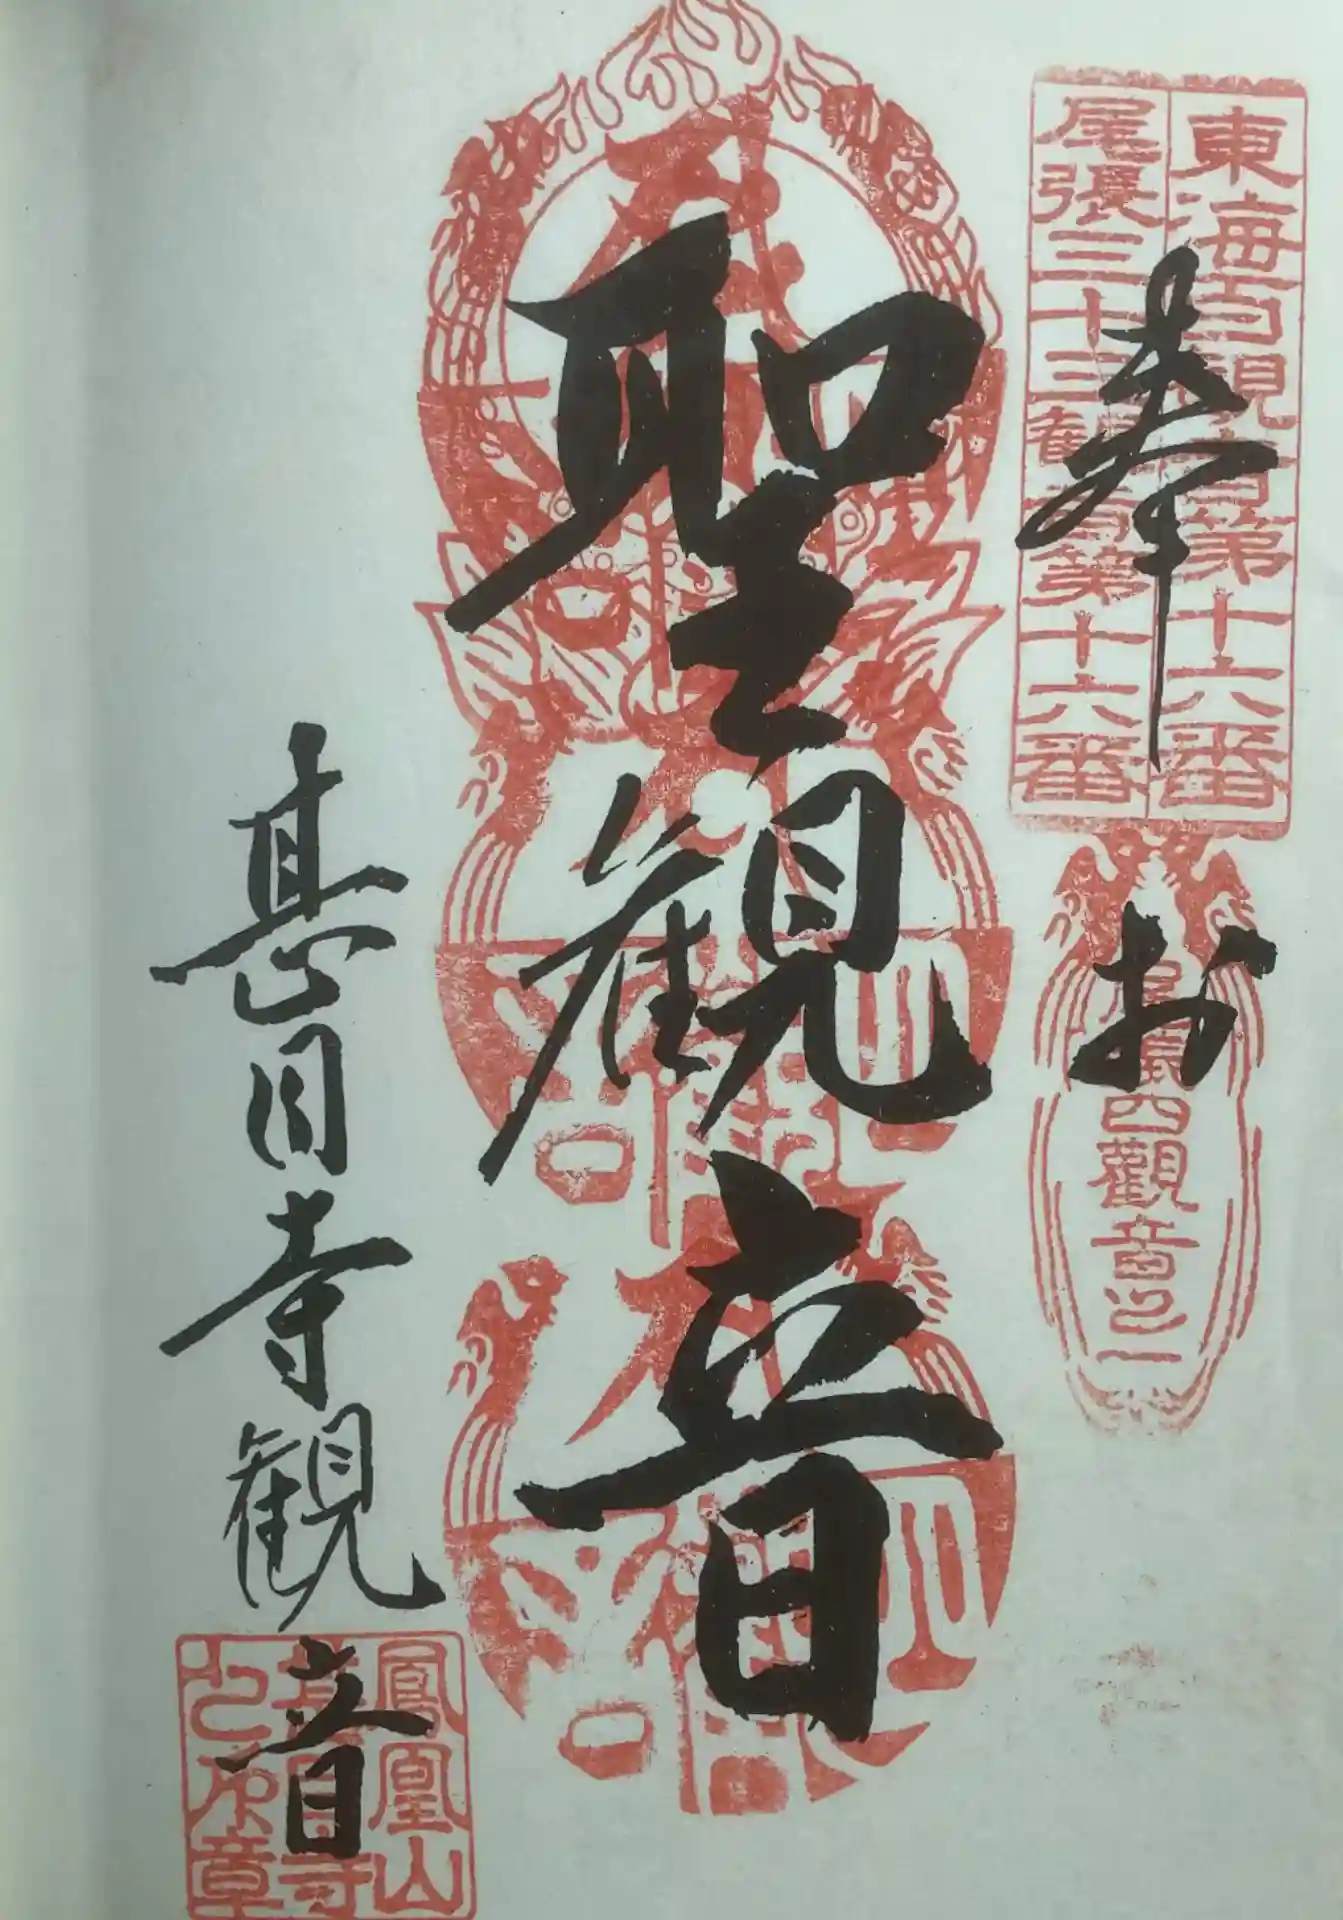 東海百観音第十六番
尾張三十三観音第十六番
奉 お
尾張四觀音
聖観音
甚目寺観音
鳳凰山
甚目寺
之印章